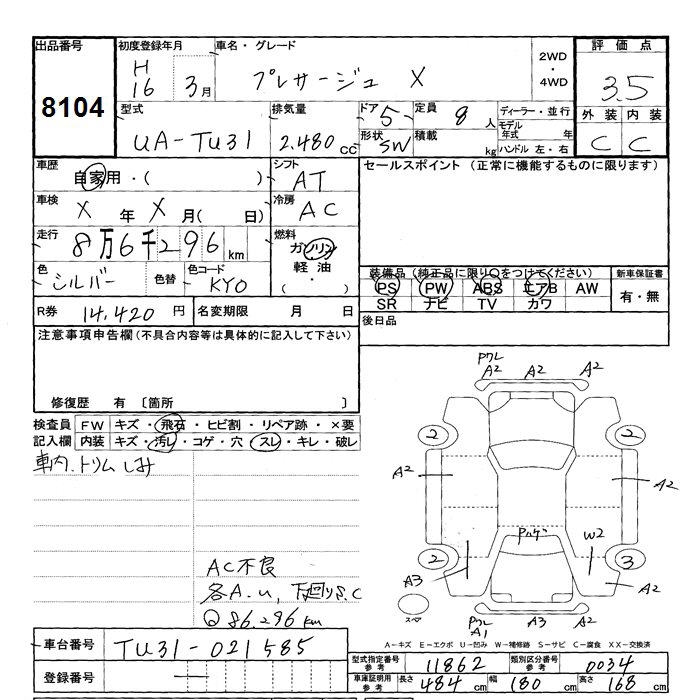 出品番号
8104
初度登録年月
H
16 3月
車名・グレード
プレサージュ X
2WD
・
4WD
評価点
3.5
型式
UA-TU31
排気量
2.480 cc
ドア 5
形状 SW
定員 8 人
積載 kg
ディーラー・並行
モデル
年式 年
ハンドル 左・右
外装 内装
C C
車歴
自家用・( )
シフト
AT
セールスポイント (正常に機能するものに限ります)
車検
X 年 X 月( 日)
冷房
AC
走行
8万6千296 km
燃料
ガソリン
軽油
( ・ )
色
シルバー
色替
色コード
KY0
装備品(純正品に限り○をつけてください)
PS PW ABS エアB AW
SR ナビ TV カワ
新車保証書
有・無
R券 14,420 円
名変期限 月 日
後日品
注意事項申告欄(不具合内容等は具体的に記入して下さい)
修復歴 有 〔箇所 〕
検査員
記入欄
FW キズ・飛石・ヒビ割・リペア跡・×要
内装 キズ・汚レ・コゲ・穴・スレ・キレ・破レ
車内.トリムしみ
AC不良
各A.u, 下廻りS.C
86.296km
PクレA2 A2 A2
2 2
A2 A2
Pハゲ W2
2 3
A3 A2
スペア
PクレA1 A3 A2
A=キズ E=エクボ U=凹み W=補修跡 S=サビ C=腐食 XX=交換済
車台番号
TU31-021585
登録番号
型式指定番号
参考
11862
類別区分番号
参考
0034
車庫証明用
参考
長さ 484 cm 幅 180 cm 高さ 168 cm